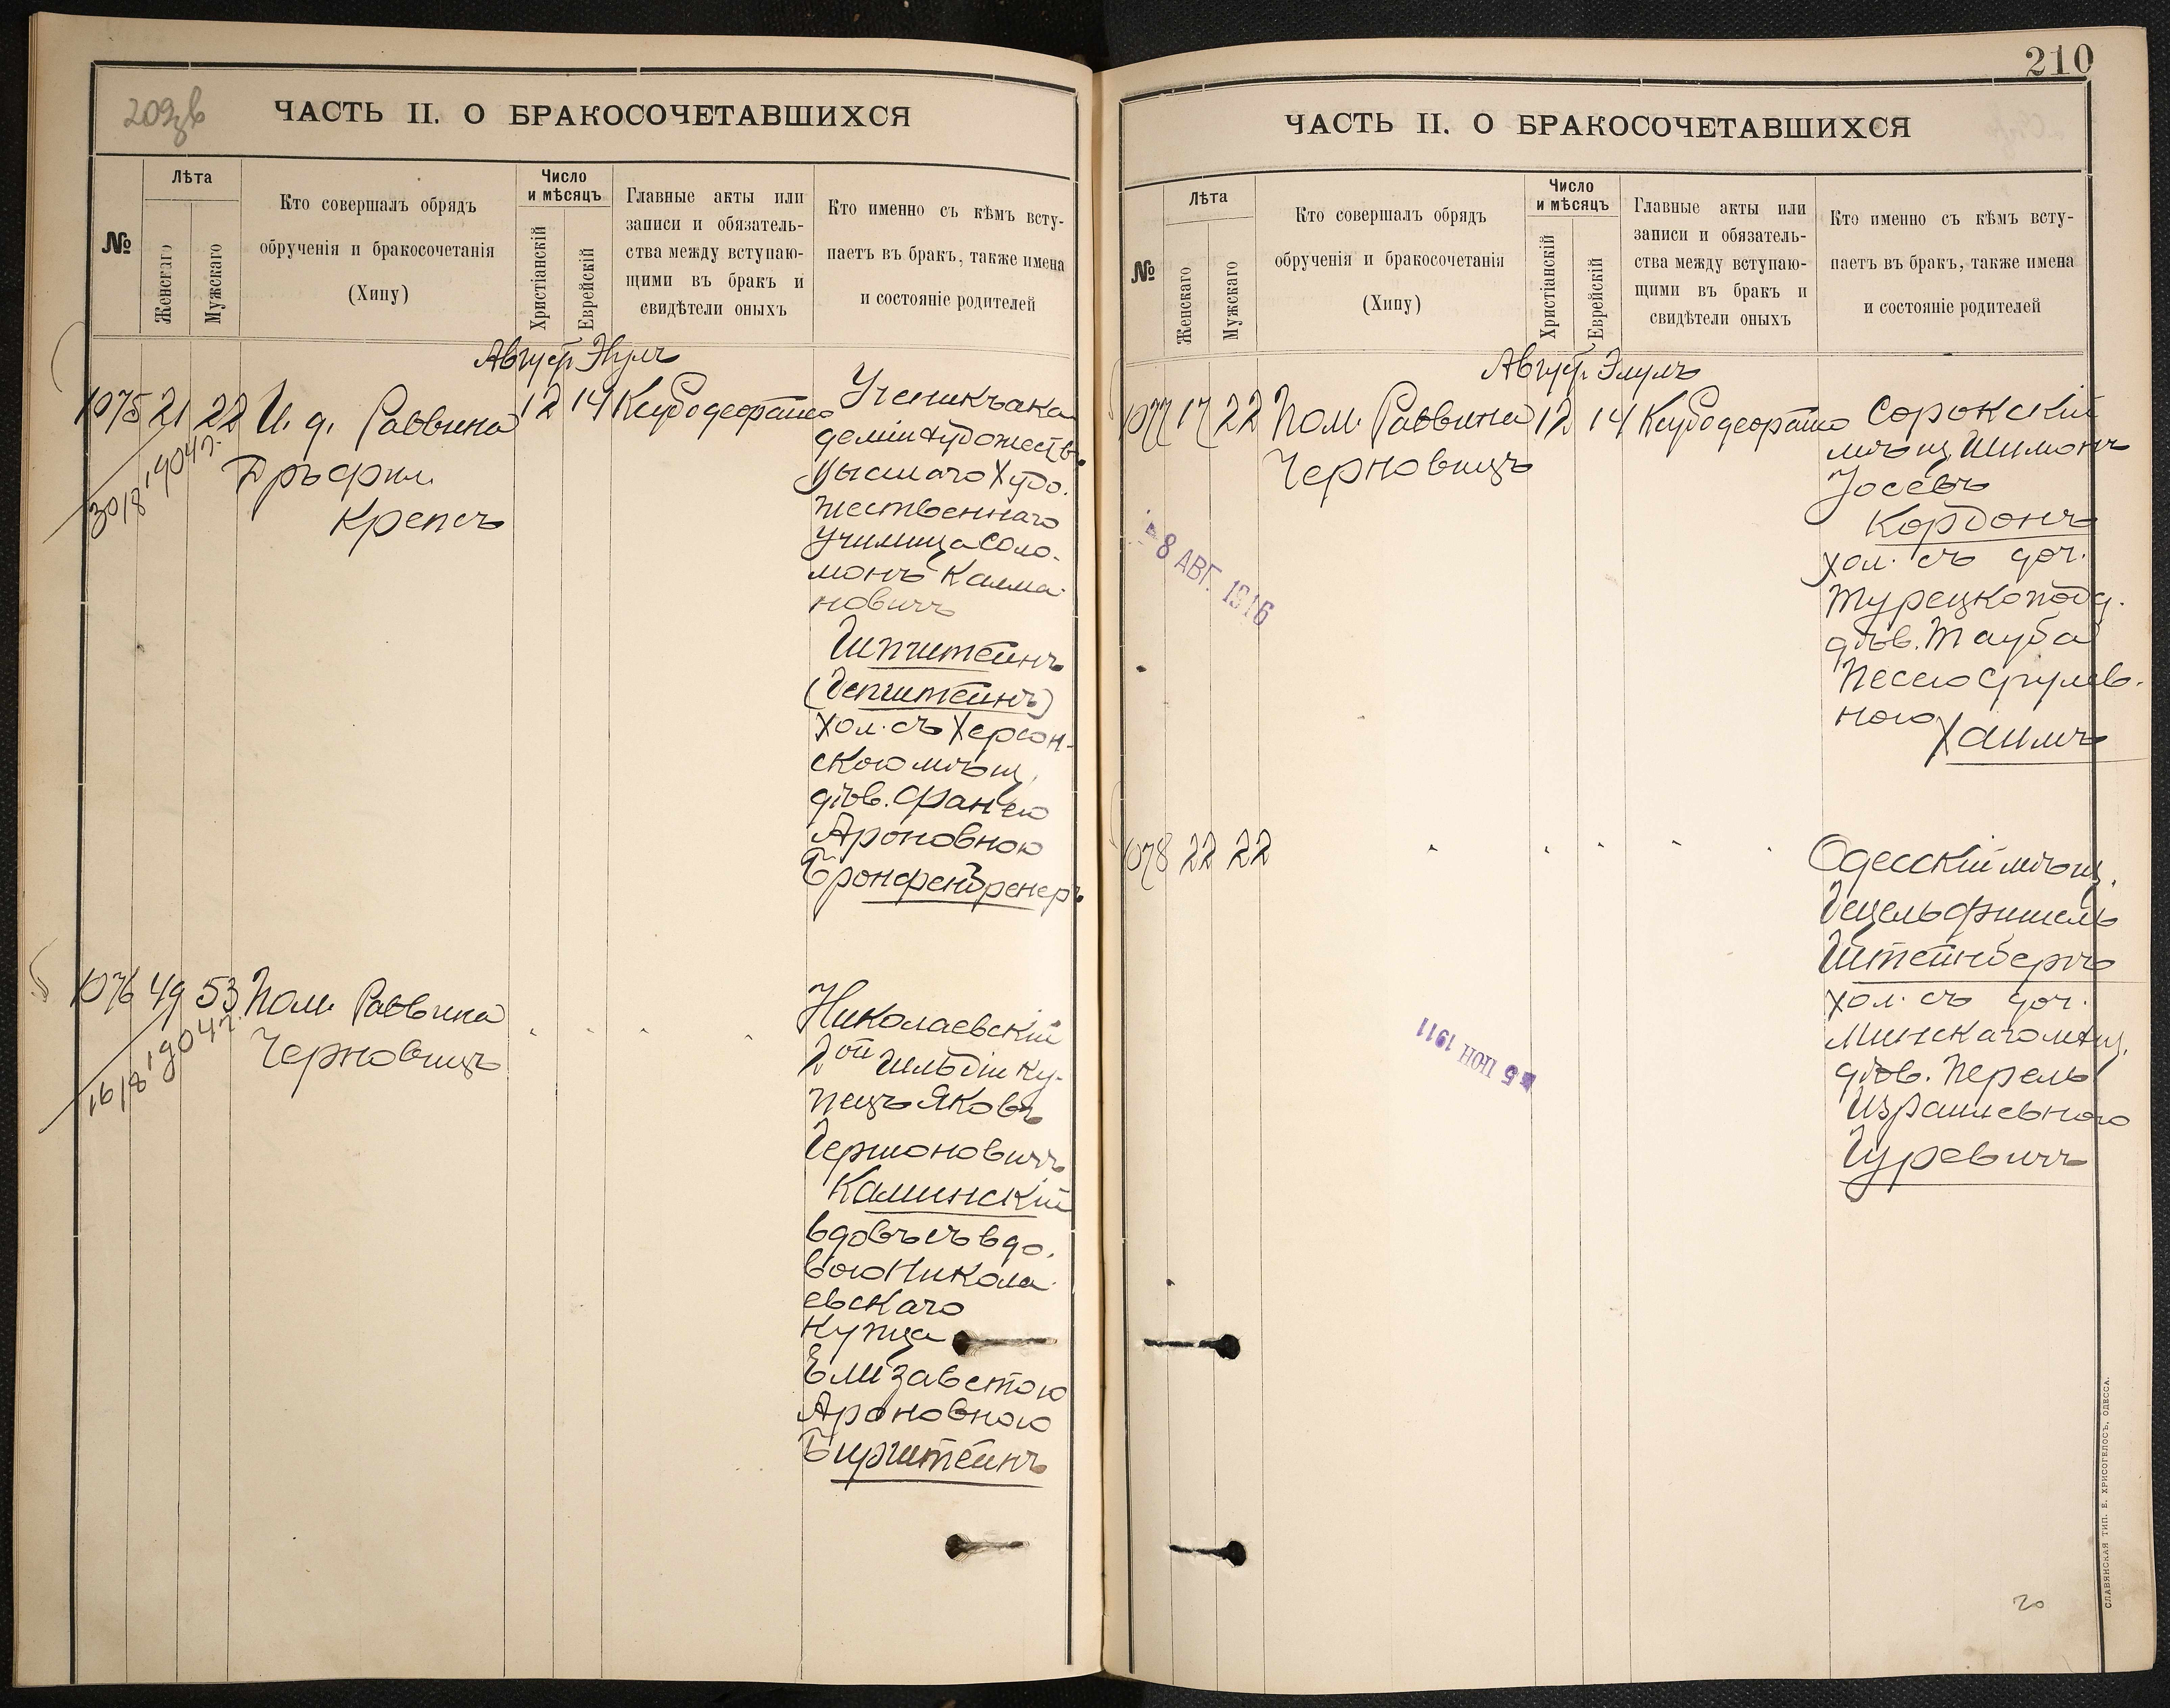 209зв
ЧАСТЬ II. О БРАКОСОЧЕТАВШИХСЯ
№
Лѣта
Женскаго
Мужскаго
Кто совершалъ обрядъ
обрученія и бракосочетанія
(Хипу)
Число
и мѣсяцъ
Христіанскій
Еврейскій
Главные акты или
записи и обязатель-
ства между вступаю-
щими въ бракъ и
свидѣтели оныхъ
Кто именно съ кѣмъ всту-
паетъ въ бракъ, также имена
и состояніе родителей
Август. Элулъ
1075 21 22 И. д. Раввина 12 14
30/8 1904 г.
Дръ фил.
Крепсъ
Ученикъ ака
деміи художеств.
Высшаго Худо.
жественнаго
Училища Соло-
монъ Калма-
новичъ
Шпштейнъ
(Эпштейнъ)
хол. съ Херсон-
скою мѣщ.
дѣв. Фанею
Ароновною
Бронфенбренеръ
1076 49 53 Пом. Раввина
16/8 1904 г.
Черновицъ
Николаевскій
2ой гильдіи ку-
пецъ Яковъ
Гершоновичъ
Калинскій
вдовъ съ вдо.
вою Никола
евскаго
купца
Елизаветою
Ароновною
Бурштейнъ
210
ЧАСТЬ II. О БРАКОСОЧЕТАВШИХСЯ
№
Лѣта
Женскаго
Мужскаго
Кто совершалъ обрядъ
обрученія и бракосочетанія
(Хипу)
Число
и мѣсяцъ
Христіанскій
Еврейскій
Главные акты или
записи и обязатель-
ства между вступаю-
щими въ бракъ и
свидѣтели оныхъ
Кто именно съ кѣмъ всту-
паетъ въ бракъ, также имена
и состояніе родителей
Август. Элулъ
1077 17 22 Пом. Раввина 12 14
Черновицъ
Сорокскій
мѣщ. Шимонъ
Іосевъ
Кордонъ
хол. съ доч.
турецкоподд.
дѣв. Тауба
Песею Срулев-
ною
Хаимъ
-8 АВГ. 1916
1078 22 22
Одесскій мѣщ.
Гецель Фишель
Штейнбергъ
хол. съ доч.
Минскаго мѣщ.
дѣв. Перель
Израилевною
Гуревичъ
-5 ІЮН 1911
20
СЛАВЯНСКАЯ ТИП. Е. ХРИСОГЕЛОСЪ, ОДЕССА.